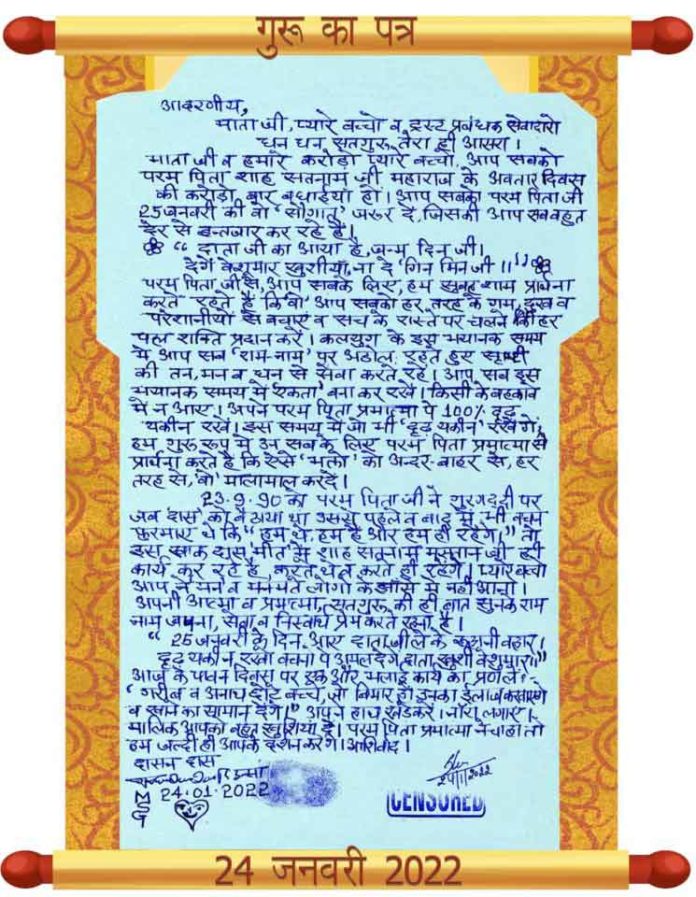 गुरू का पत्र
आदरणीय,
माता जी, प्यारे बच्चो व ट्रस्ट प्रबंधक सेवादारो
धन धन सतगुरू तेरा ही आसरा।
माता जी व हमारे करोड़ो प्यारे बच्चो, आप सबको
परम पिता शाह सतनाम जी महाराज के अवतार दिवस
की करोड़ो बार बधाईयां हो। आप सबको परम पिता जी
25 जनवरी की वो 'सौगात' जरूर दे, जिसका आप सब बहुत
देर से इन्तजार कर रहे है।
“दाता जी का आया है, जन्म दिन जी।
देगें बेशुमार खुशीयां, ना दे 'गिन मिन जी॥”
परम पिता जी से, आप सबके लिए, हम सुबह शाम प्रार्थना
करते रहते है कि वो आप सबको हर तरह के गम, दुख व
परेशानीयों से बचाएं व सच के रास्ते पर चलने की हर
पल शक्ति प्रदान करें। कलयुग के इस भयानक समय
मे आप सब 'राम-नाम' पर अडोल रहते हुए सृष्टी
की तन, मन व धन से सेवा करते रहें। आप सब इस
भयानक समय में 'एकता' बना कर रखें। किसी के बहकावे
मे न आए। अपने परम पिता प्रमात्मा पे 100% दृढ़
यकीन रखें। इस समय मे जो भी 'दृढ़ यकीन' रखेंगे,
हम गुरू रूप मे उन सबके लिए परम पिता प्रमात्मा से
प्रार्थना करते है कि ऐसे 'भक्तो' को अन्दर-बाहर से, हर
तरह से, 'वो' मालामाल करदें।
23.9.90 को परम पिता जी ने गुरगद्दी पर
जब दास को बैठाया था उससे पहले व बाद मे भी वचन
फरमाए थे कि “हम थे, हम है और हम ही रहेंगे।” तो
इस खाक दास मीत में शाह सतनाम, मस्तान जी ही
कार्य कर रहे है, करते थे व करते ही रहेंगे। प्यारे बच्चो
आप ने मन व मनमते लोगो के झांसे मे नही आना।
अपनी आत्मा व प्रमात्मा, सतगुरू की ही बात सुनके राम
नाम जपना, सेवा व निस्वार्थ प्रेम करते रहना है।
“25 जनवरी के दिन, आए दाता जी लेके रूहानी बहार।
दृढ़ यकीन, रखो वचनो पे अमल देगें दाता, खुशी बेशुमार॥”
आज के पावन दिवस पर एक और भलाई कार्य का प्रण लें:-
“गरीब व अनाथ छोटे बच्चे, जो बिमार हो उनका ईलाज करवाएंगे
व खाने का सामान देंगे।” अपने हाथ खड़े करें। नारा लगाएं।
मालिक आपको बहुत खुशियां दें। परम पिता प्रमात्मा ने चाहा तो
हम जल्दी ही आपके दर्शन करेंगे। आर्शिवाद।
दासन दास
24.01.2022
24/1/2022
MSG
CENSORED
24 जनवरी 2022